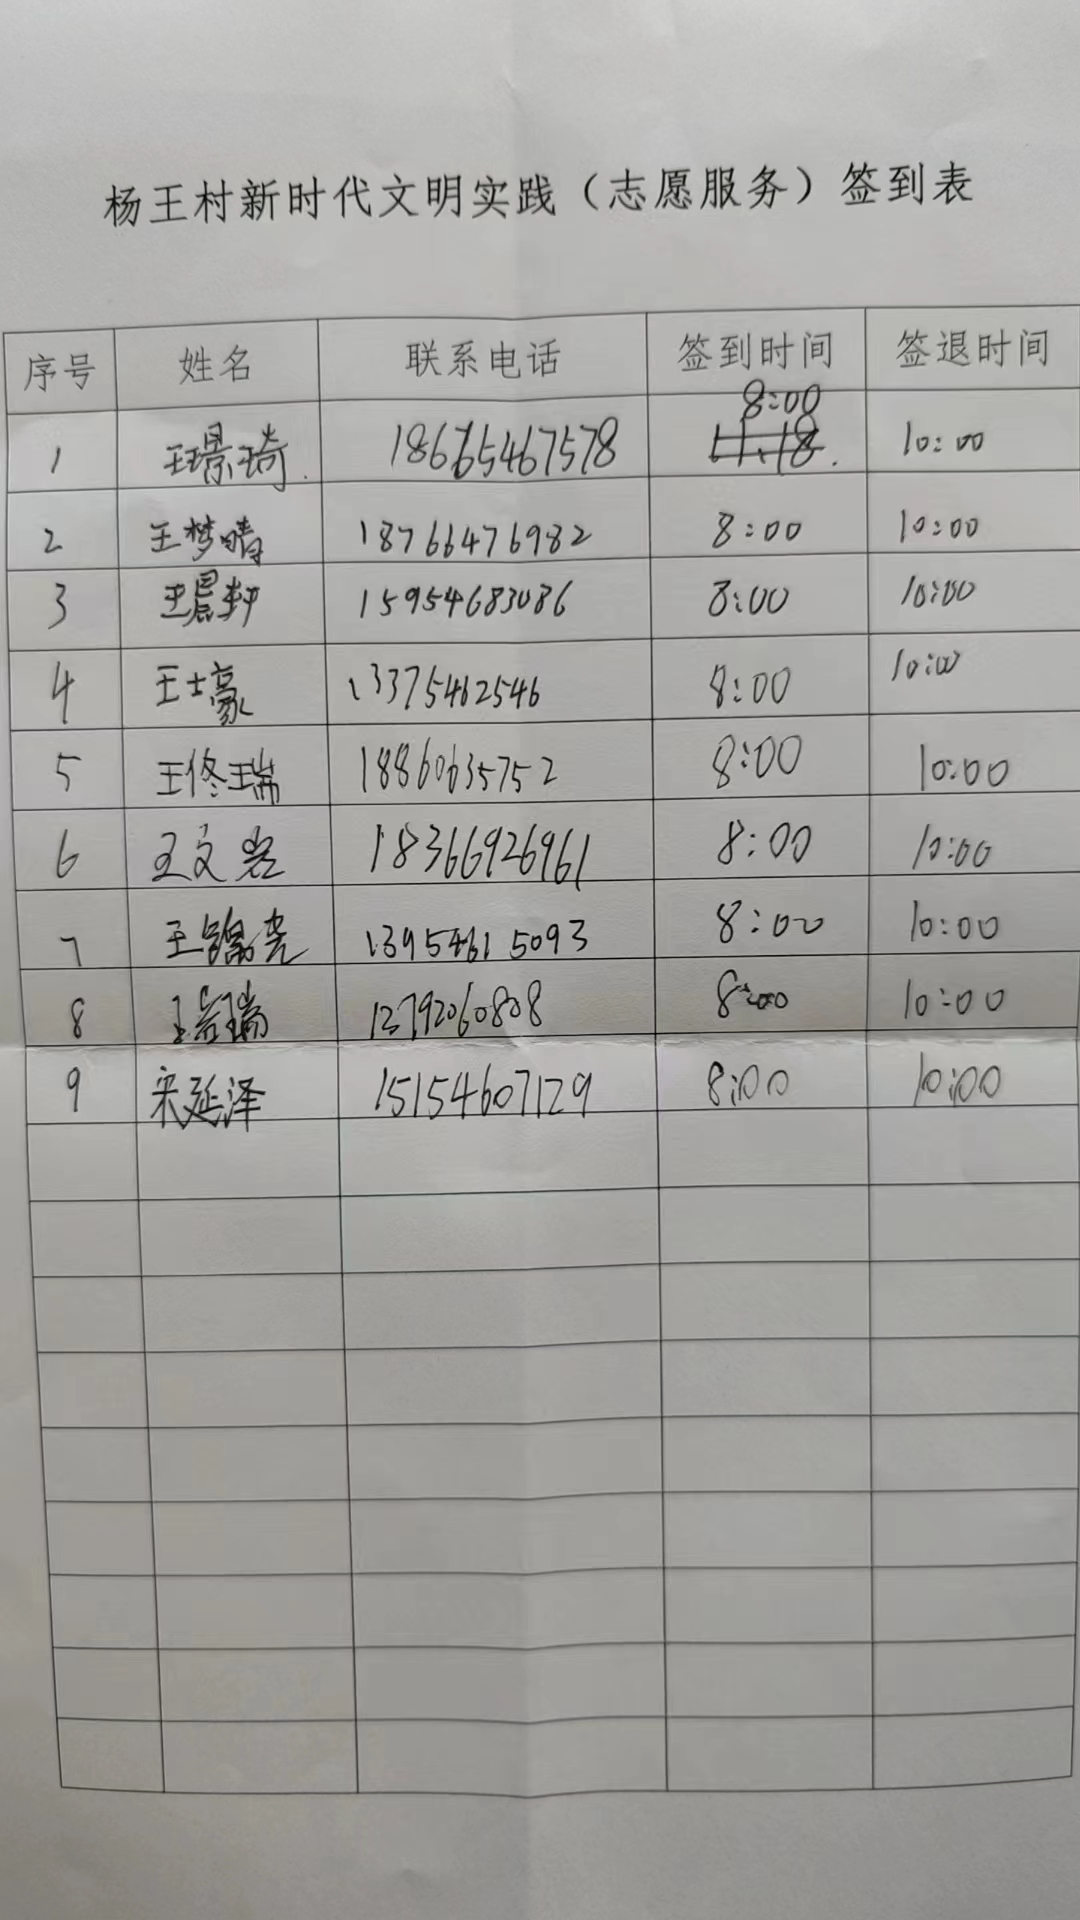 杨王村新时代文明实践（志愿服务）签到表
序号 姓名 联系电话 签到时间 签退时间
8:00
1 王璟琦 18665467578 11.18. 10:00
2 王梦晴 18766476982 8:00 10:00
3 15954683086 8:00 10:00
4 王士豪 13375462546 8:00 10:00
5 王佟瑞 18860635752 8:00 10:00
6 王文岩 18366926961 8:00 10:00
7 王锦尧 13954615093 8:00 10:00
8 王岩瑞 13792060808 8:00 10:00
9 宋延泽 15154607129 8:00 10:00